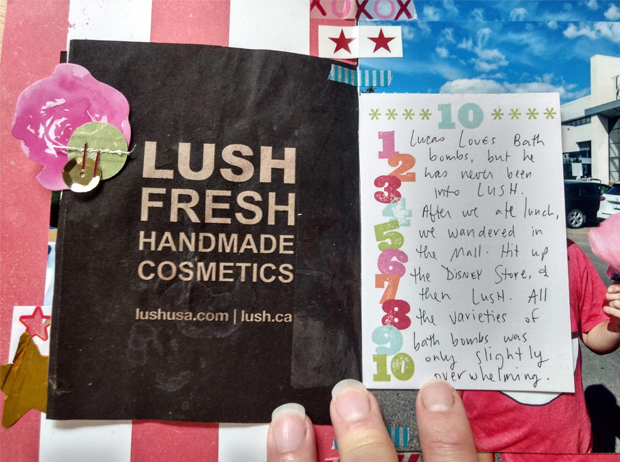 XOXOX
LUSH
FRESH
HANDMADE
COSMETICS
lushusa.com | lush.ca
10
1
2
3
4
5
6
7
8
9
10
Lucas Loves Bath
bombs, but he
has never been
into LUSH.
After we ate lunch,
we wandered in
the Mall. Hit up
the DISNEY Store, &
then LUSH. All
the varieties of
bath bombs was
only slightly
overwhelming.